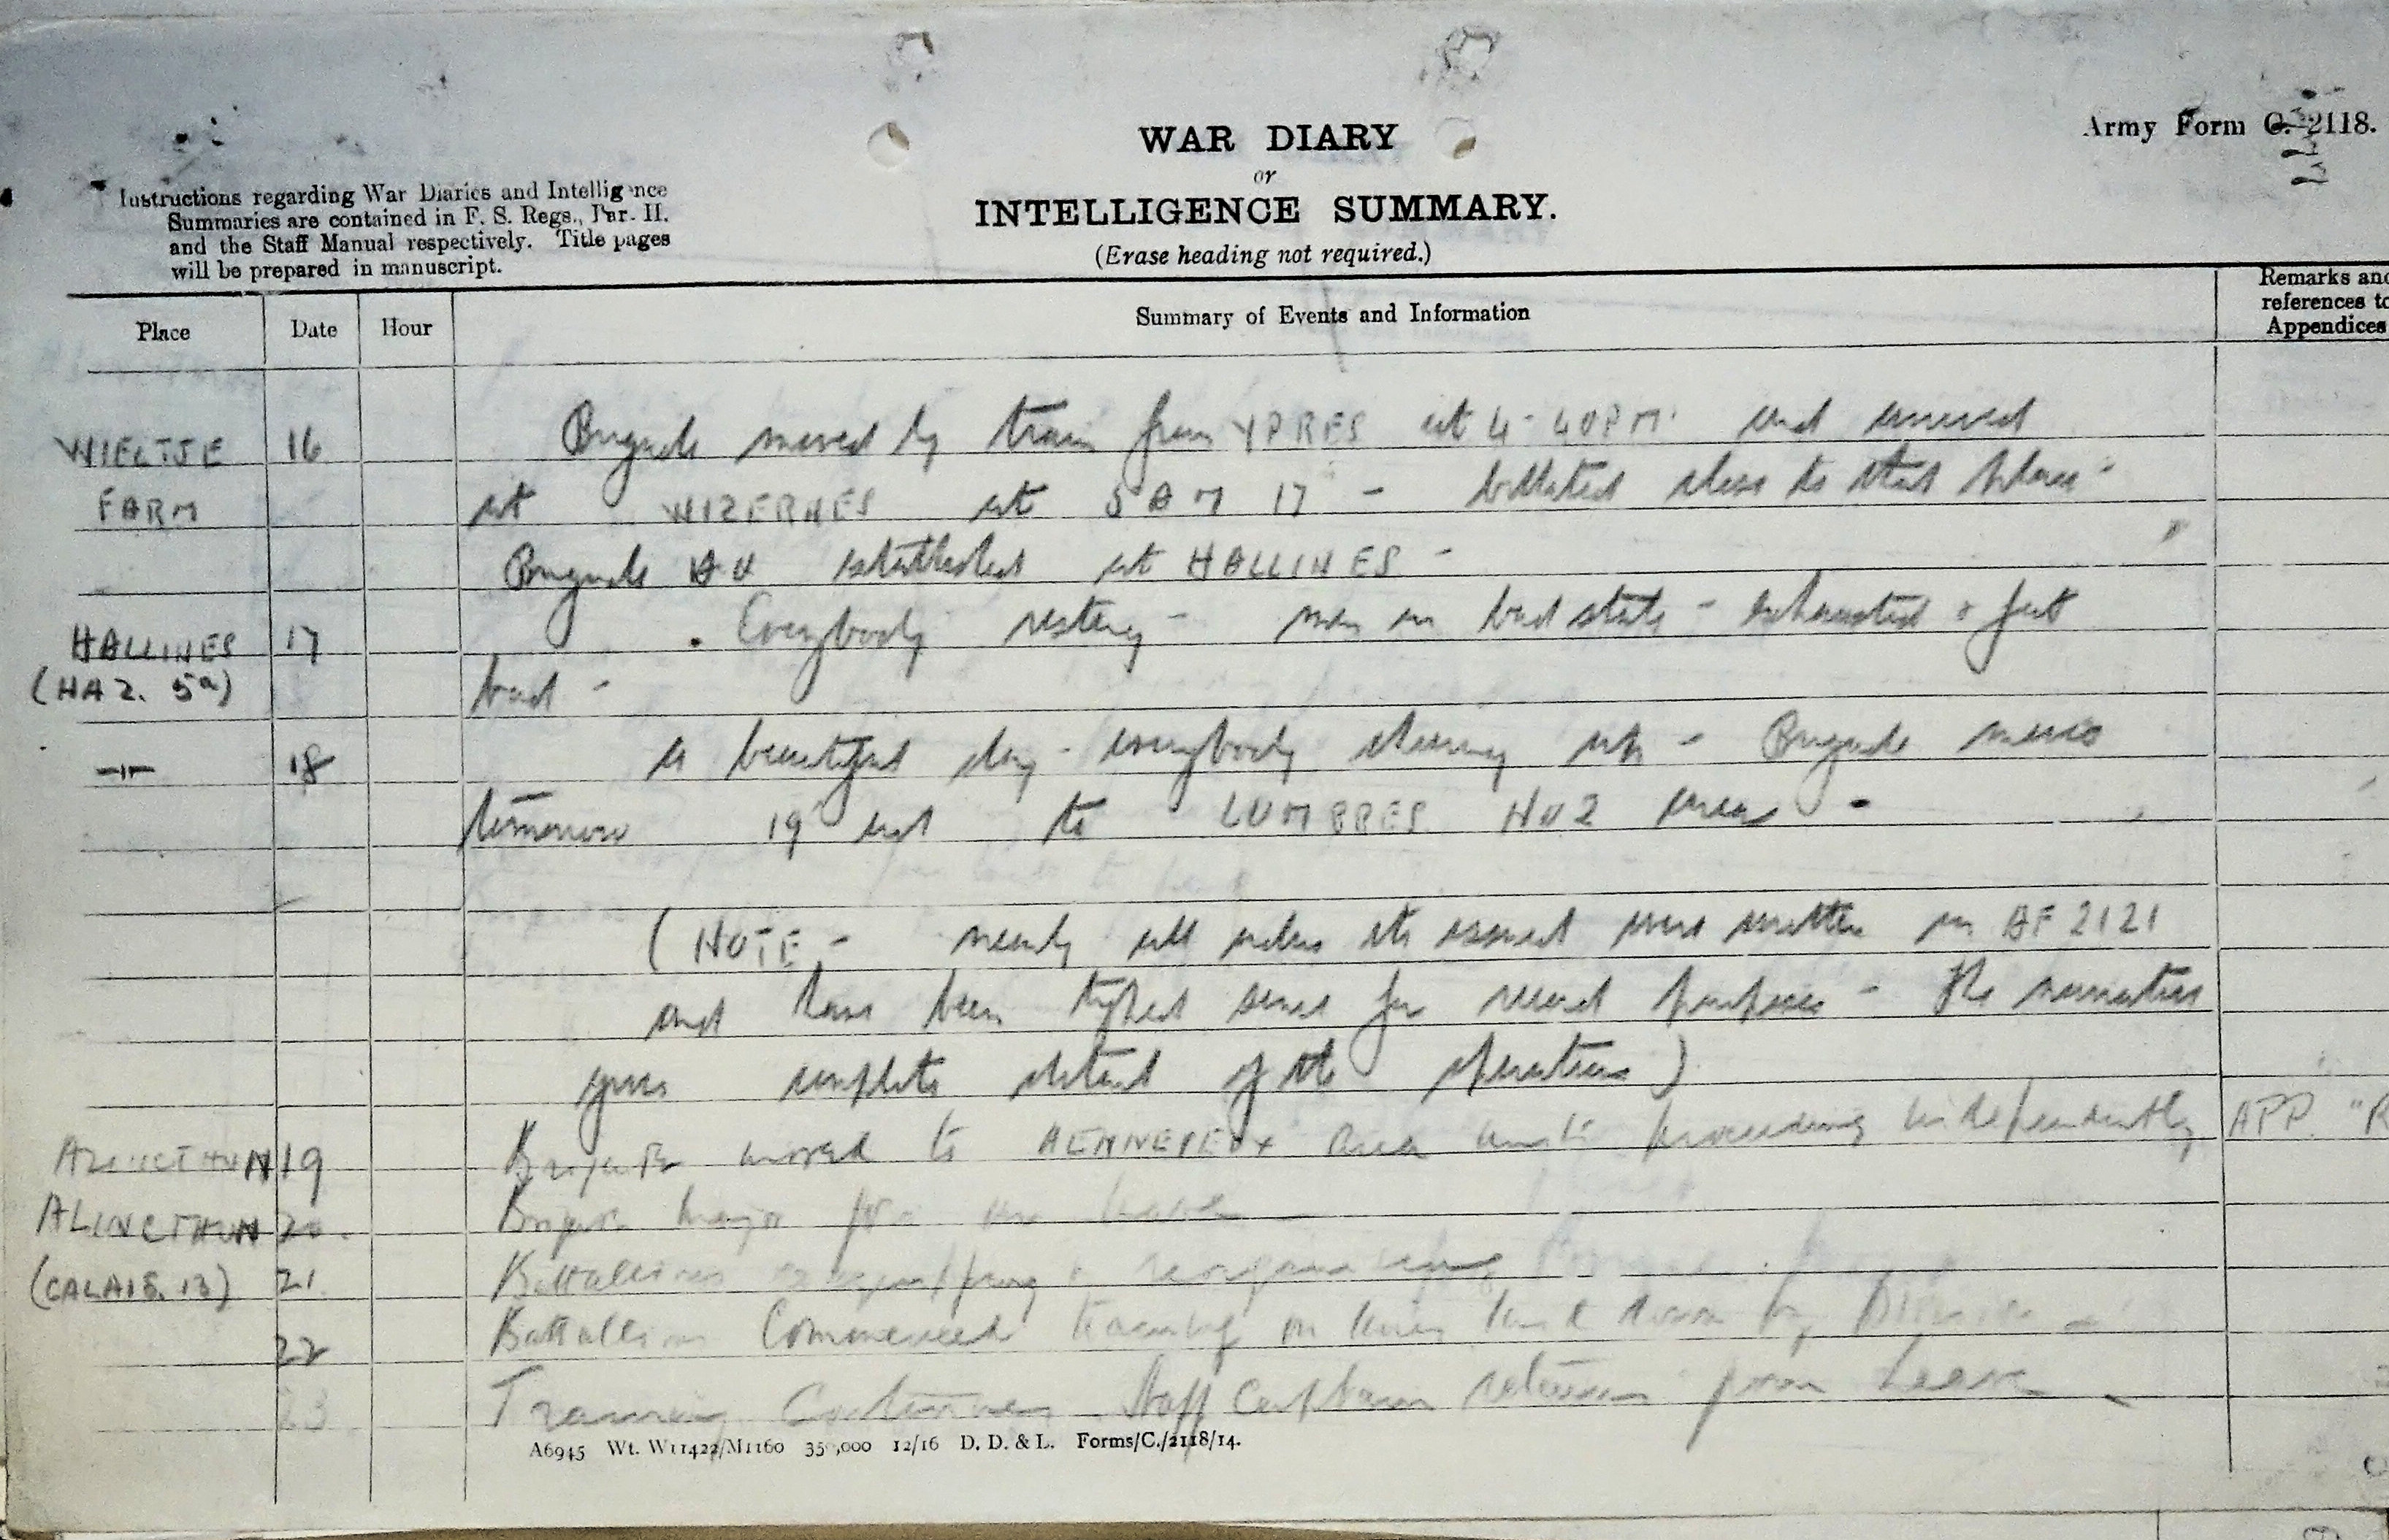 Army Form C. 2118.
WAR DIARY
or
INTELLIGENCE SUMMARY.
(Erase heading not required.)
Instructions regarding War Diaries and Intelligence
Summaries are contained in F. S. Regs., Par. II.
and the Staff Manual respectively. Title pages
will be prepared in manuscript.
Place Date Hour Summary of Events and Information Remarks and
references to
Appendices
WIELTJE 16 Brigade moved by train from YPRES at 4-40PM. and arrived
FARM at WIZERNES at 5 AM 17 - billeted close to that place -
Brigade HQ established at HALLINES -
HALLINES 17 Everybody resting - men in bad state - exhausted & feet
(HAZ. 5a) bad -
-"- 18 A beautiful day - everybody cheering up - Brigade moves
tomorrow 19 to LUMBRES No 2 area -
(NOTE - nearly all orders etc issued were written on AF 2121
and have been typed for record purposes - The narrative
gives complete detail of the operations)
ALINCTHUN 19 Brigade moved to HENNEVEUX area units proceeding independently APP. "R
ALINCTHUN 20. Brigade Major on leave -
(CALAIS. 13) 21. Battalions reequipping & reorganising
22 Battalion Commenced training on lines laid down by Division -
23 Training Continues - Staff Captain returns from Leave -
A6945 Wt. W11422/M1160 350,000 12/16 D. D. & L. Forms/C./2118/14.